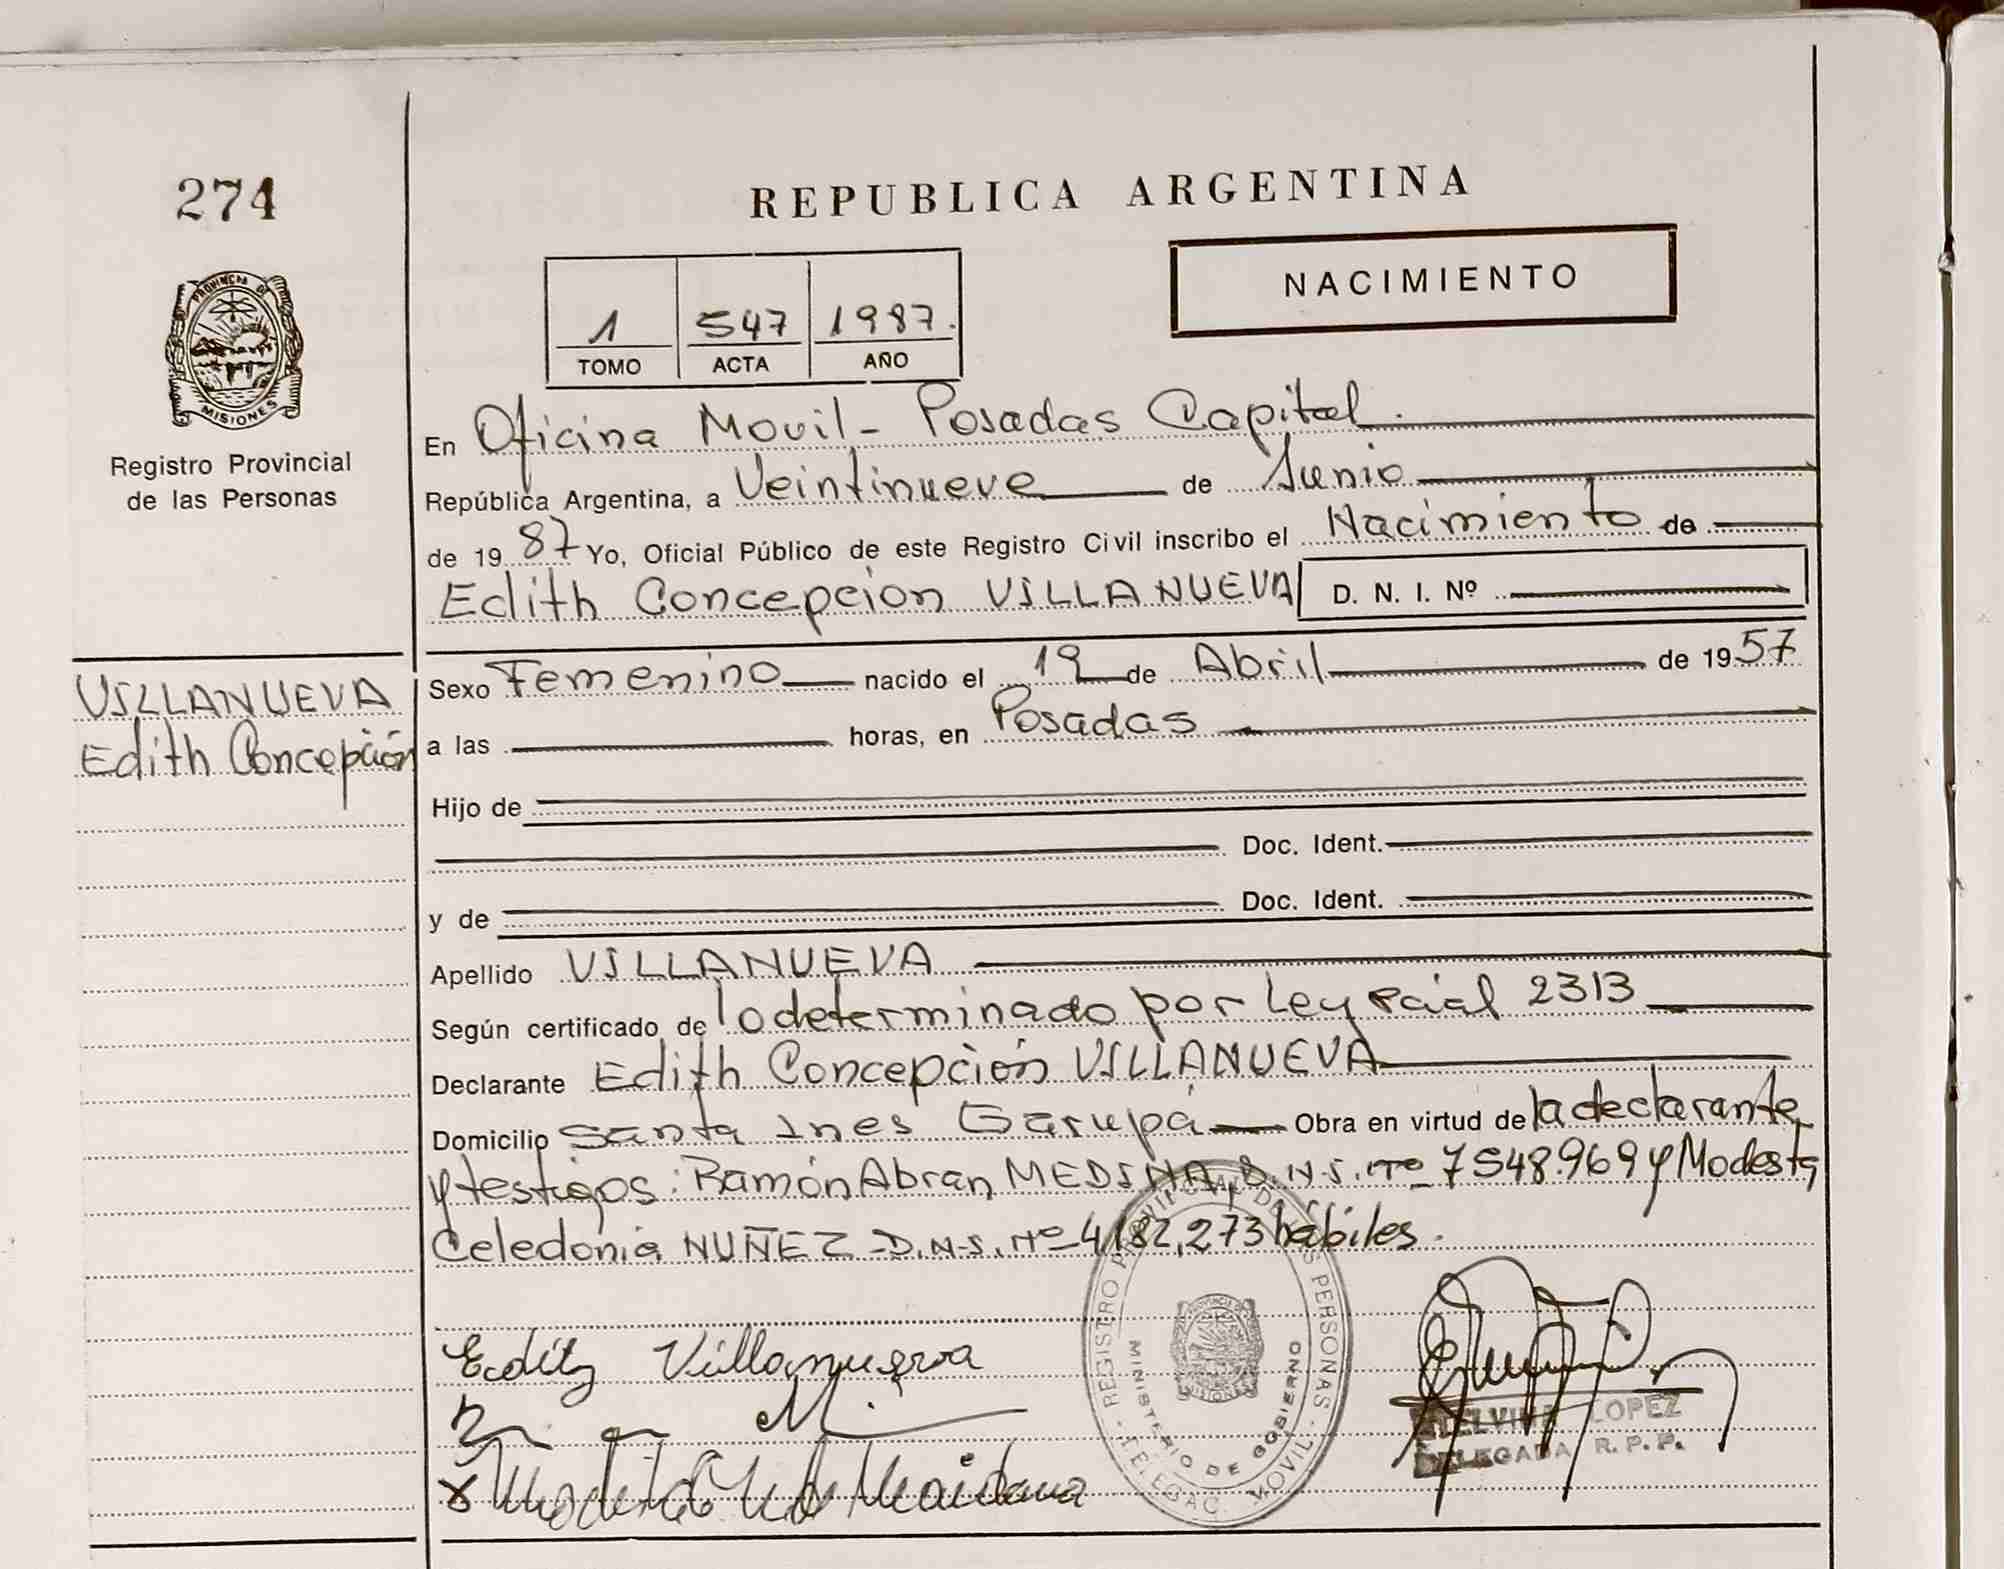 274
REPUBLICA ARGENTINA
NACIMIENTO
1 547 1987.
TOMO ACTA AÑO
PROVINCIA DE
MISIONES
Registro Provincial
de las Personas
En Oficina Movil - Posadas Capital.
República Argentina, a Veintinueve de Junio
de 19 87 Yo, Oficial Público de este Registro Civil inscribo el Nacimiento de
Edith Concepcion VILLANUEVA D. N. I. Nº
VILLANUEVA
Edith Concepción
Sexo Femenino nacido el 19 de Abril de 19 57
a las horas, en Posadas
Hijo de
Doc. Ident.
y de Doc. Ident.
Apellido VILLANUEVA
Según certificado de lo determinado por Ley pcial 2313
Declarante Edith Concepción VILLANUEVA
Domicilio Santa Ines Garupá Obra en virtud de la declarante
y testigos: Ramón Abran MEDINA, D.N.I. Nº 7548.969 y Modesta
Celedonia NUÑEZ - D.N.I. Nº 4,182,273 hábiles.
Edith Villanueva
REGISTRO PROVINCIAL DE LAS PERSONAS
MINISTERIO DE GOBIERNO
DELEGAC. MOVIL
MISIONES
ELVIRA LOPEZ
DELEGADA R. P. P.